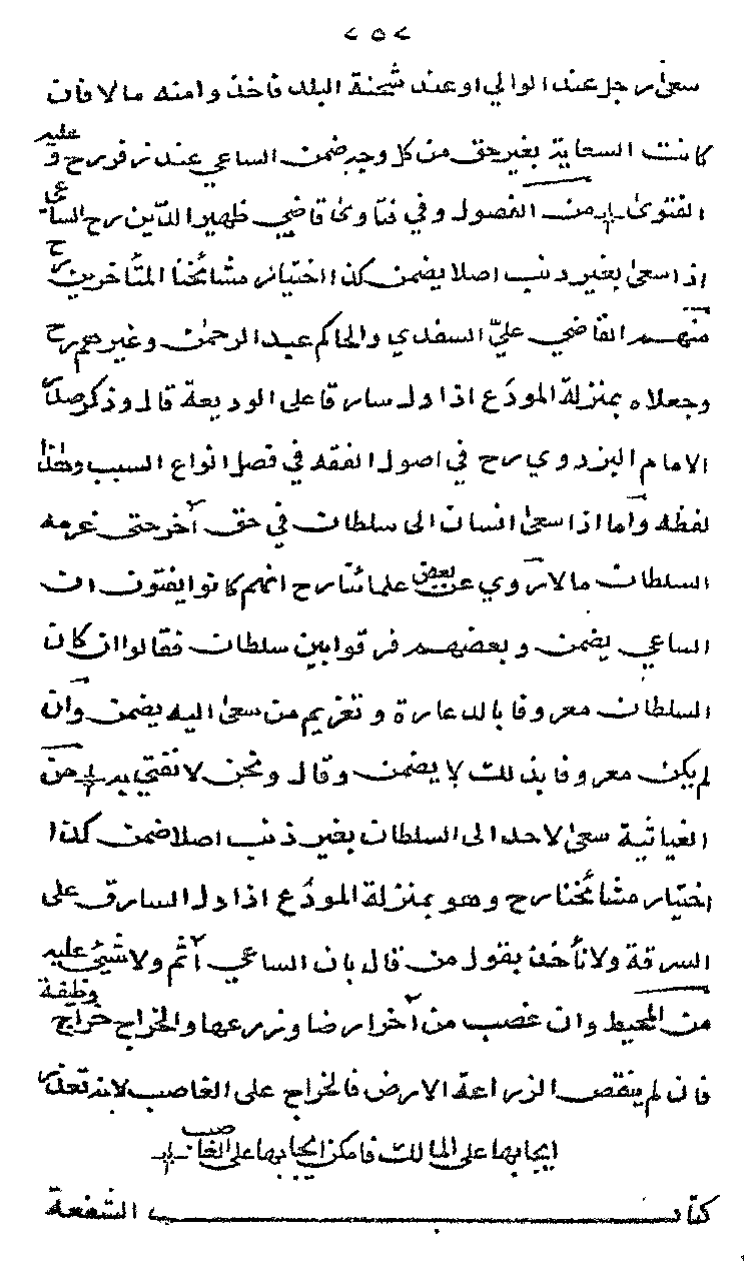 ٢٥٢
سعى رجل عند الوالي او عند شحنة البلد فاخذوا منه مالا فان
كانت السعاية بغير حق من كل وجه ضمن الساعي عند زفر رح و عليه
الفتوى من الفصول وفي فتاوى قاضي ظهير الدين رح الساعى
اذا سعى بغير ذنب اصلا يضمن كذا اختيار مشائخنا المتأخرين رح
منهم القاضي علي السغدي والحاكم عبد الرحمن وغيرهم رح
وجعلاه بمنزلة المودع اذا دل سارقا على الوديعة قال وذكر صدر
الامام البزدوي رح في اصول الفقه في فصل انواع السبب وهذا
لفظه واما اذا سعى انسان الى سلطان في حق آخر حتى غرمه
السلطان مالا روي عن بعض علمائنا رح انهم كانوا يفتون ان
الساعي يضمن وبعضهم فرقوا بين سلطان فقالوا ان كان
السلطان معروفا بالدعارة وتغريم من سعى اليه يضمن وان
لم يكن معروفا بذلك لا يضمن وقال ونحن لا نفتي به من
الغياثية سعى لاحد الى السلطان بغير ذنب اصلا ضمن كذا
اختيار مشائخنا رح وهو بمنزلة المودع اذا دل السارق على
السرقة ولا نأخذ بقول من قال بان الساعي آثم ولا شيئ عليه
من المحيط وان غصب من آخر ارضا وزرعها والخراج خراج وظيفة
فان لم ينقص الزراعة الارض فالخراج على الغاصب لانه تعذر
ايجابها على المالك فامكن ايجابها على الغاصب
كتاب الشفعة